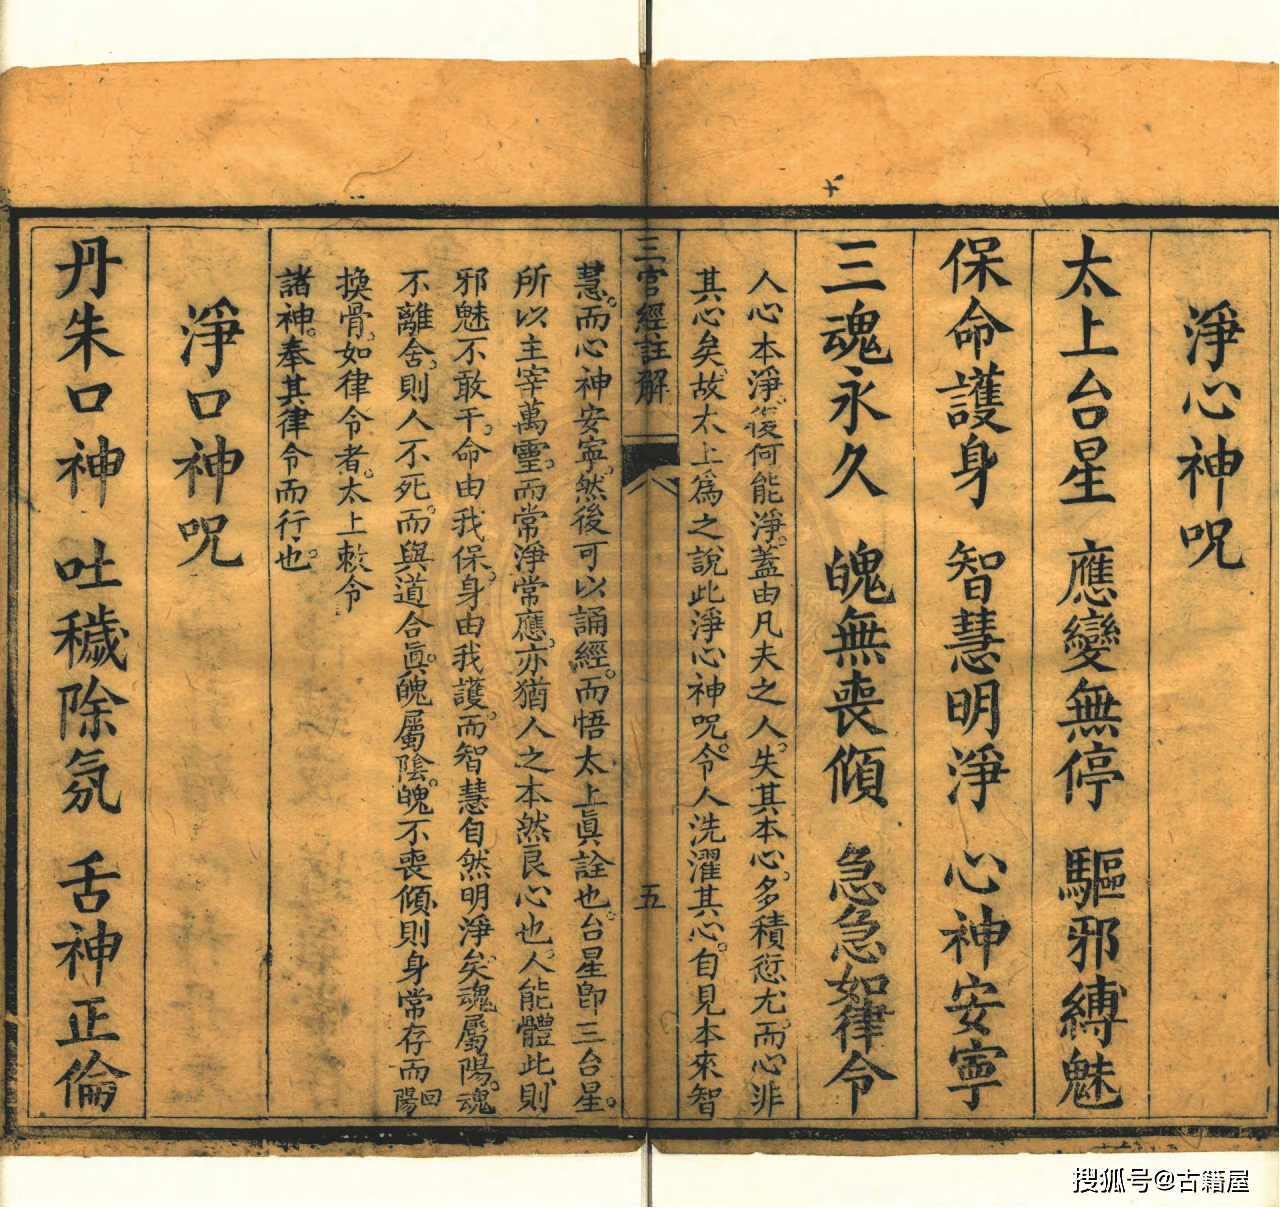 淨心神咒
太上台星　應變無停　驅邪縛魅
保命護身　智慧明淨　心神安寧
三魂永久　魄無喪傾　急急如律令
人心本淨。後何能淨。蓋由凡夫之人。失其本心。多積愆尤。而心非
其心矣。故太上爲之說此淨心神咒。令人洗濯其心。自見本來智
三官經註解　五
慧。而心神安寧。然後可以誦經。而悟太上眞詮也。台星卽三台星。
所以主宰萬靈。而常淨常應。亦猶人之本然良心也。人能體此。則
邪魅不敢干。命由我保。身由我護。而智慧自然明淨矣。魂屬陽。魂
不離舍。則人不死。而與道合眞。魄屬陰。魄不喪傾。則身常存。而陽回
換骨。如律令者。太上敕令
諸神。奉其律令而行也。
淨口神咒
丹朱口神　吐穢除氛　舌神正倫
搜狐号@古籍屋